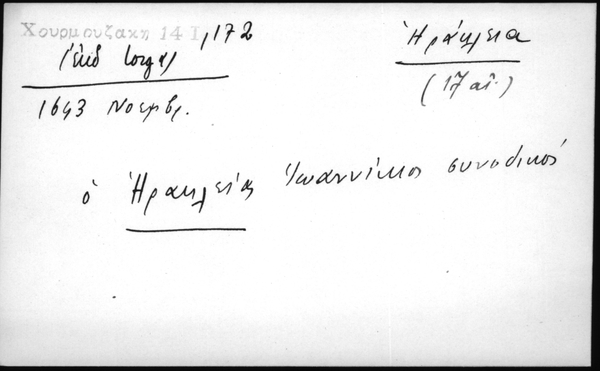 Χουρμουζακη 14 I, 172
Ἡράκλεια
(ἐκδ Iorga)
(17 αἰ.)
1643 Νοεμβρ.
ὁ Ἡρακλείας Ἰωαννίκιος συνοδικός